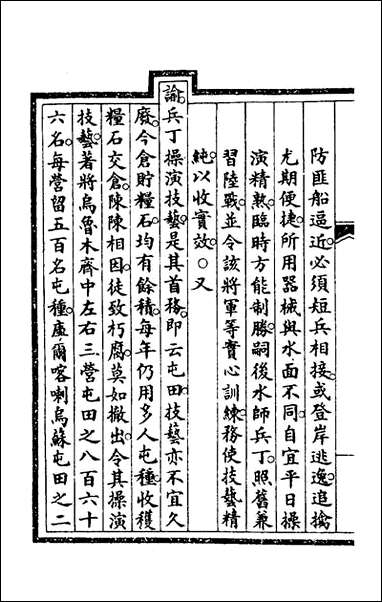 防匪船逼近必須短兵相接或登岸逃逸追擒
尤期便捷所用器械與水面不同自宜平日操
演精熟臨時方能制勝嗣後水師兵丁照舊兼
習陸戰並令該將軍等實心訓練務使技藝精
純以收實效○又
諭兵丁操演技藝是其首務即云屯田技藝亦不宜久
廢今倉貯糧石均有餘積每年仍用多人屯種收穫
糧石交倉陳陳相因徒致朽腐莫如撤出令其操演
技藝著將烏魯木齊中左右三營屯田之八百六十
六名每營留五百名屯種庫爾喀喇烏蘇屯田之二